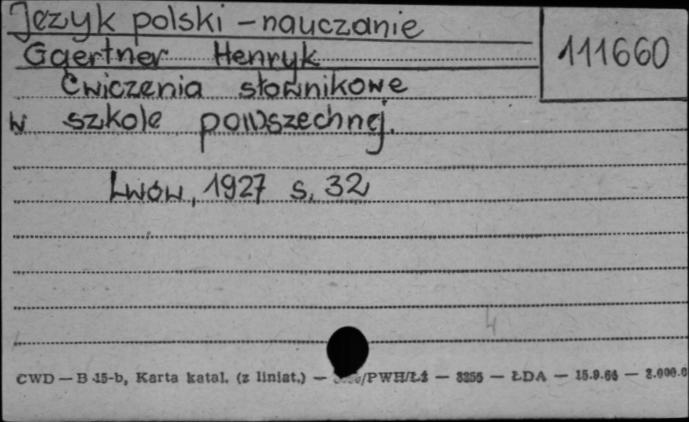 Język polski - nauczanie
111660
Gaertner Henryk
Ćwiczenia słownikowe
w szkole powszechnej.
Lwów, 1927 s. 32
4
CWD — B 15-b, Karta katal. (z liniat.) — /PWH/Łż — 8256 — ŁDA — 15.9.66 —